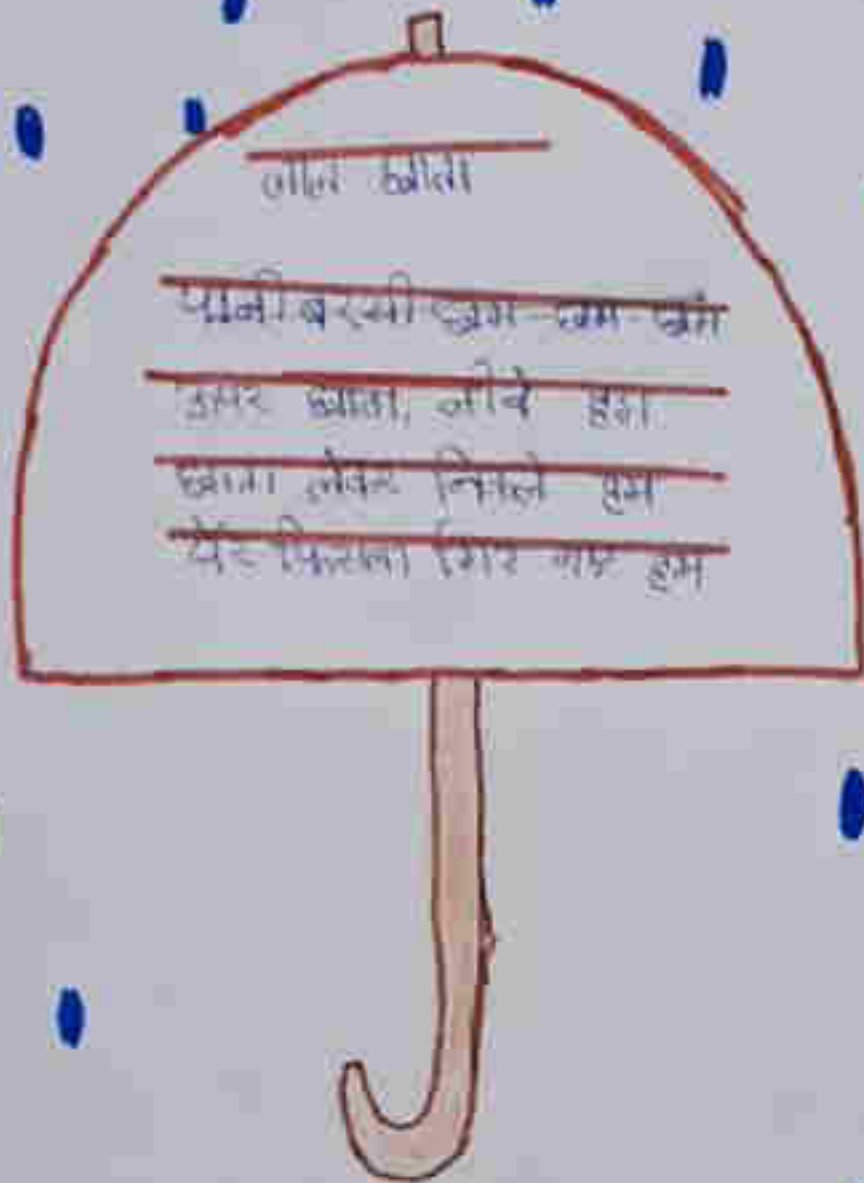 लाल छाता
पानी बरसी छम-छम-छम
उपर छाता, नीचे हम
छाता लेकर निकले हम
पैर फिसला गिर गए हम